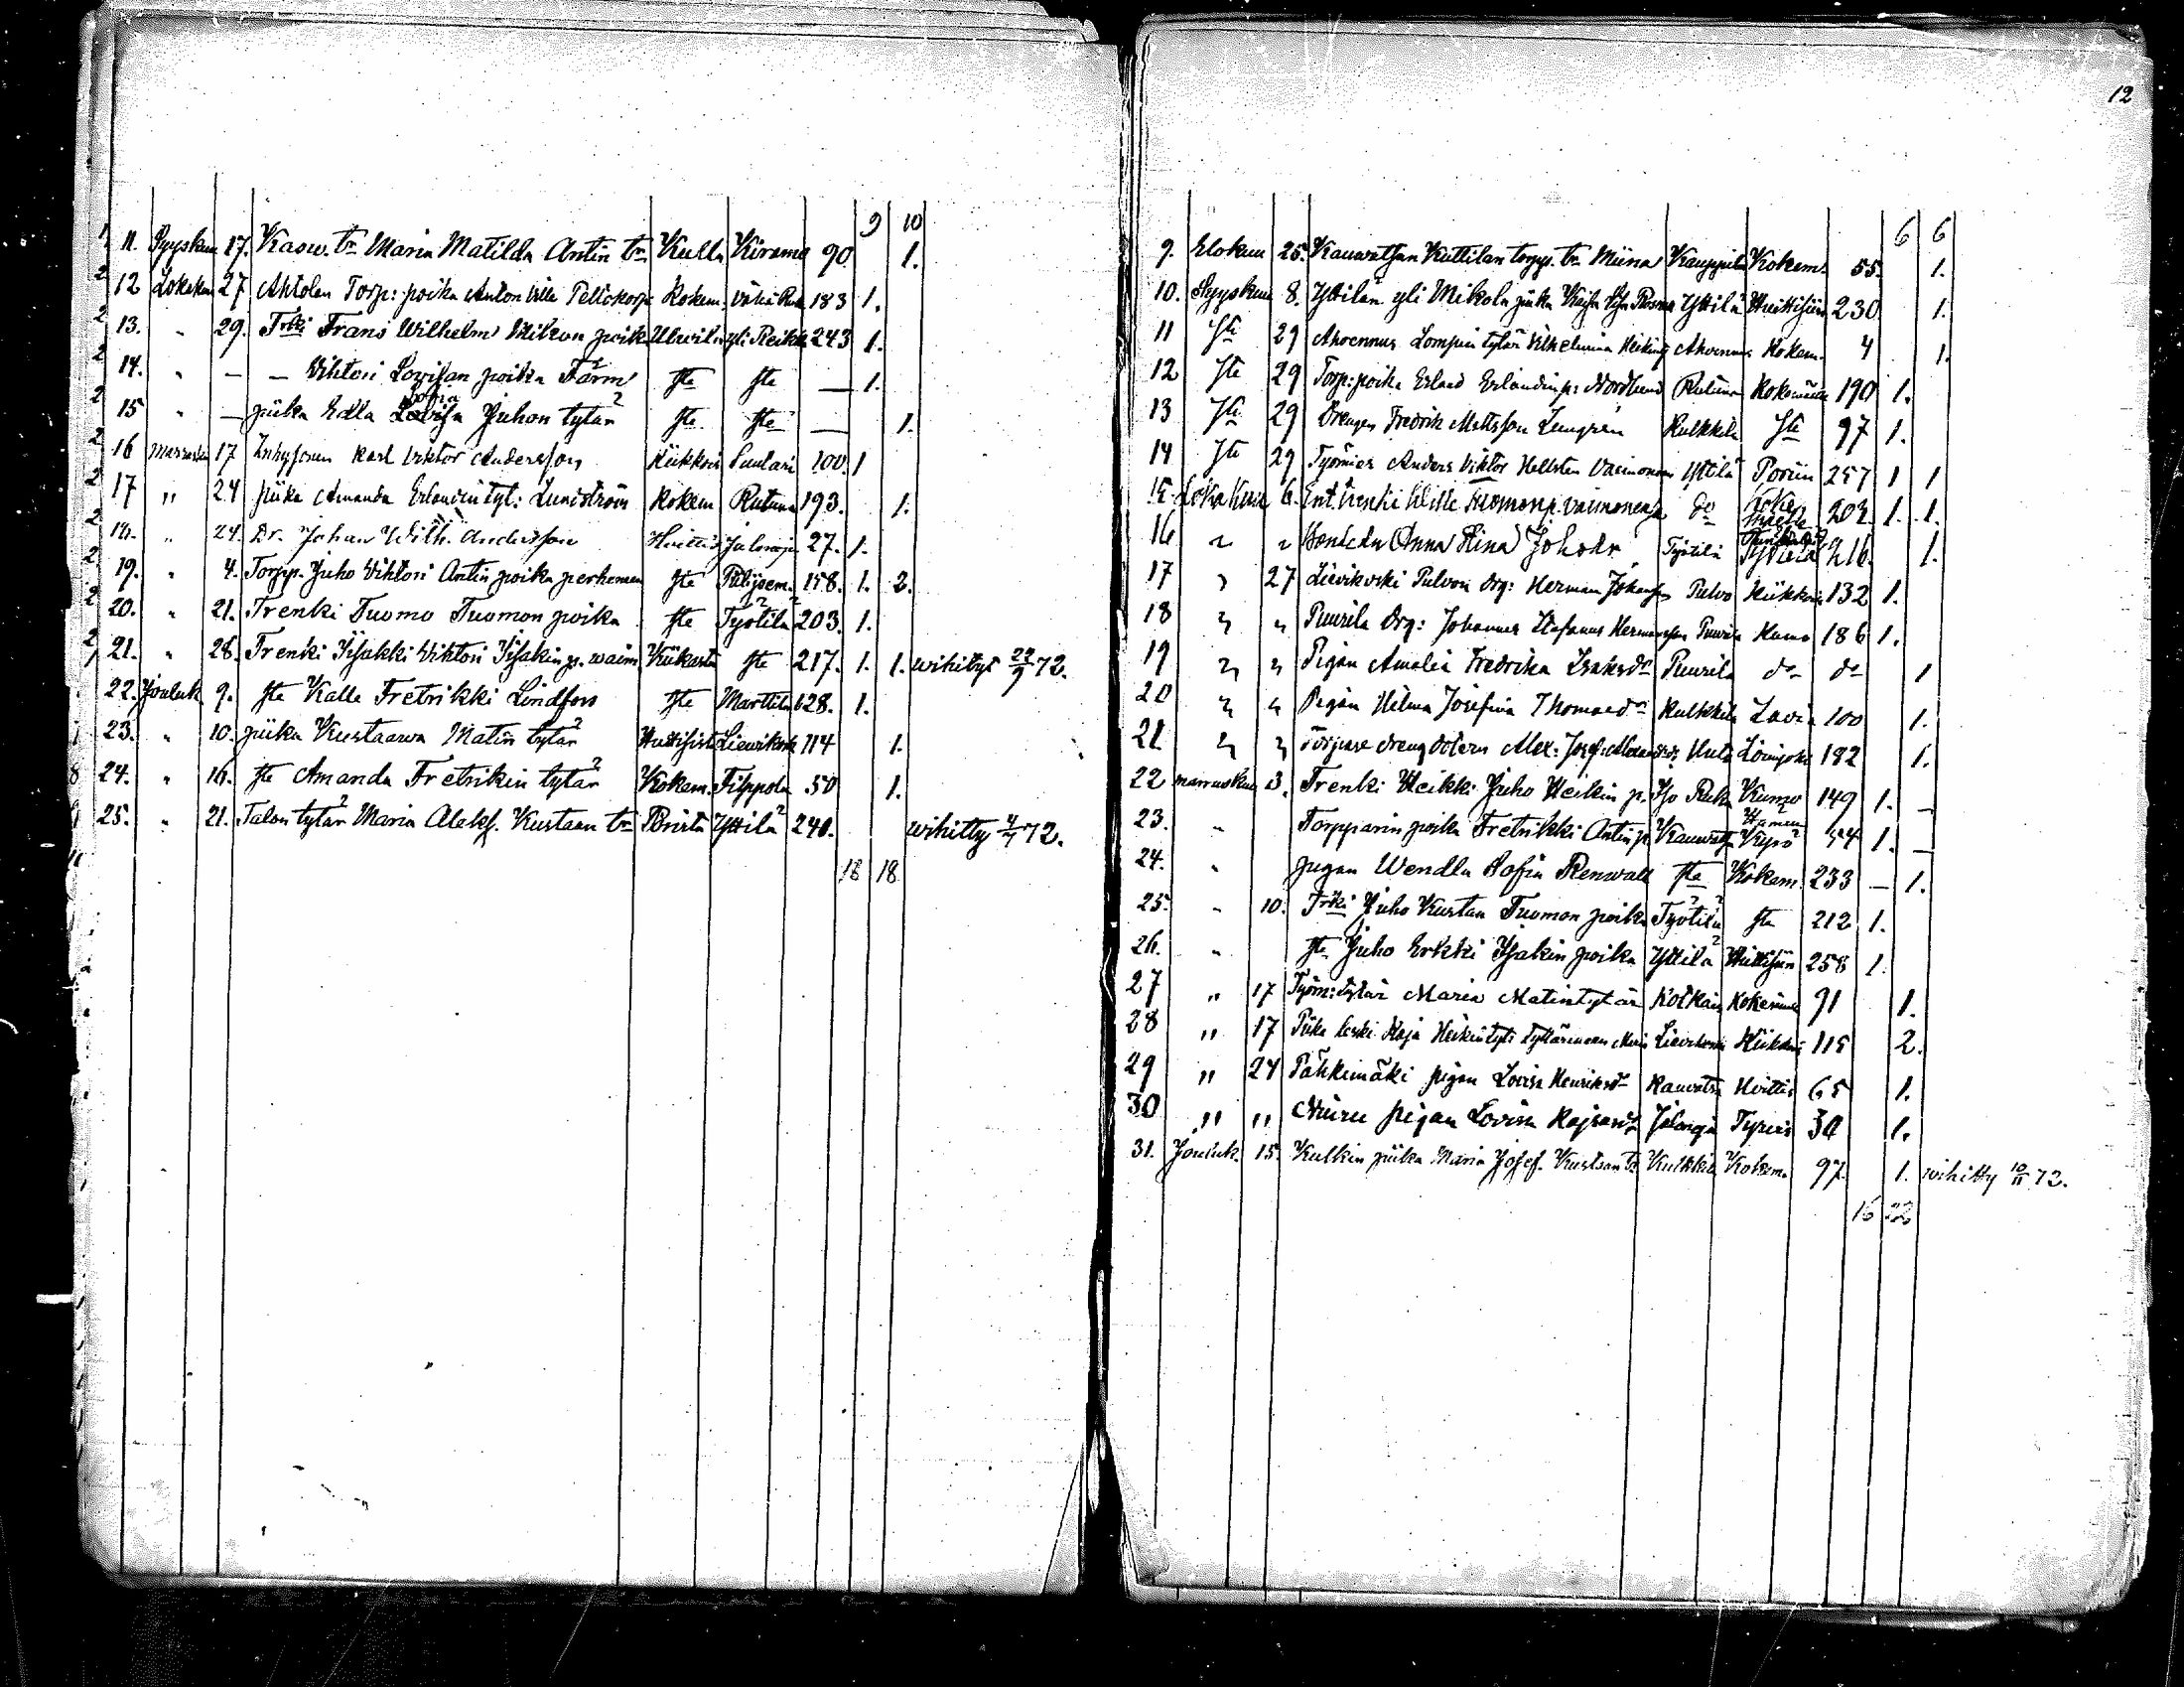 9 10
11. Syyskuu 17. Kasw. tr Maria Matilda Antin tr Kulla Kirama 90. 1.
12 Lokakuu 27 Ahtolan Torp: poika Anton Ville Kokem. Vähä 183 1.
13. " 29. Trki Frans Wilhelm Mikon poika Ulwila yli Reikk 243 1.
14. " — — Wihtori Lowisan poika Färm Ste Ste — 1.
15 " — piika Edla Sofia Juhon tytär Ste Ste — 1.
16 marrask 17 Karl Viktor Andersson Kiikkois Suulari 100. 1
17 " 24 piika Amanda Erlandin tyt: Lundström Kokem Rutuna 193. 1.
18. " 24. Dr. Johan Wilh. Andersson Huittis Jalonoja 27. 1.
19. " 4. Torpp. Juho Wihtori Antin poika perheineen Ste 158. 1. 2.
20. " 21. Trenki Tuomo Tuomon poika Ste Työtilä 203. 1.
21. " 28. Trenki Iisakki Wihtori Iisakin p. waim Kiikasta Ste 217. 1. 1. wihityt 29/9 72.
22. Jouluk 9. Ste Kalle Fretrikki Lindfors Ste Marttila 628. 1.
23. " 10. piika Kustaawa Matin tytär Huittisist Liewikosk 114 1.
24. " 16. Ste Amanda Fretrikin tytär Kokem. Filppola 50 1.
25. " 21. Talon tytär Maria Aleks. Kustaan tr Yttilä 240. wihitty 4/7 72.
18 18
12
6 6
9. Elokuu 25. Kauwatsan Kuttilan torpp. tr Miina Kauppila Kokem. 55. 1.
10. Syyskuu 8. Yttilän yli Mikola piika Kajsa Yttilä Huittisiin 230 1.
11 Ste 29 Ahvennus Lompin tytär Vilhelmina Heikint Ahvennus Kokem. 4 1.
12 Ste 29 Torp: poika Erland Erlandin p: Nordlund Rutuna Kokemäki 190 1.
13 Ste 29 Drengen Fredrik Mattsson Lungren Kulkkila Ste 97 1.
14 Ste 29 Työmies Anders Viktor Hellsten vaimoneen Yttilä Poriin 257 1 1
15. Lokakuu 6. Ent. trenki Wille Tuomon p. vaimoneen do 202. 1. 1.
16 " " Anna Stina Johsdr Työtilä 216. 1.
17 " 27 Lievikoski Pulvon drg: Herman Johansson Pulvo Kiikkois 132 1.
18 " " Puurila drg: Johannes Stefanus Hermansson Puurila Kumo 186 1.
19 " " Pigan Amalia Fredrika Isaksdr Puurila do do 1
20 " " Pigan Hilma Josefina Thomasdr Kulkkila Lavia 100 1.
21 " " Torpare dreng dotern Alex: Josef: 182 1.
22 marraskuu 3. Trenki Heikki Juho Heikin p. Iso Kumo 149 1. —
23. " Torpparin poika Fretrikki Antin p. Kauwatsa 54 1. —
24. " pigan Wendla Sofia Renwall Ste Kokem. 233 — 1.
25. " 10. Trki Juho Kustaa Tuomon poika Työtilä Ste 212 1.
26. " Ste Juho Erkki Isakin poika Yttilä Huittisiin 258 1.
27 " 17 Työm: tytär Maria Matintytär Kokemäki 91 1.
28 " 17 leski Kaja Heikintyt: tyttärineen 115 2.
29 " 24 Pähkimäki pigan Lovisa Henriksdr Kauvatsa Hvittis 65 1.
30 " " pigan Lovisa Jalonoja Tyrvis 30 1.
31. Jouluk. 15. Kulkin piika Maria Josef. Kustaan tr. Kulkkila Kokem. 97. 1. wihitty 10/11 72.
16 22